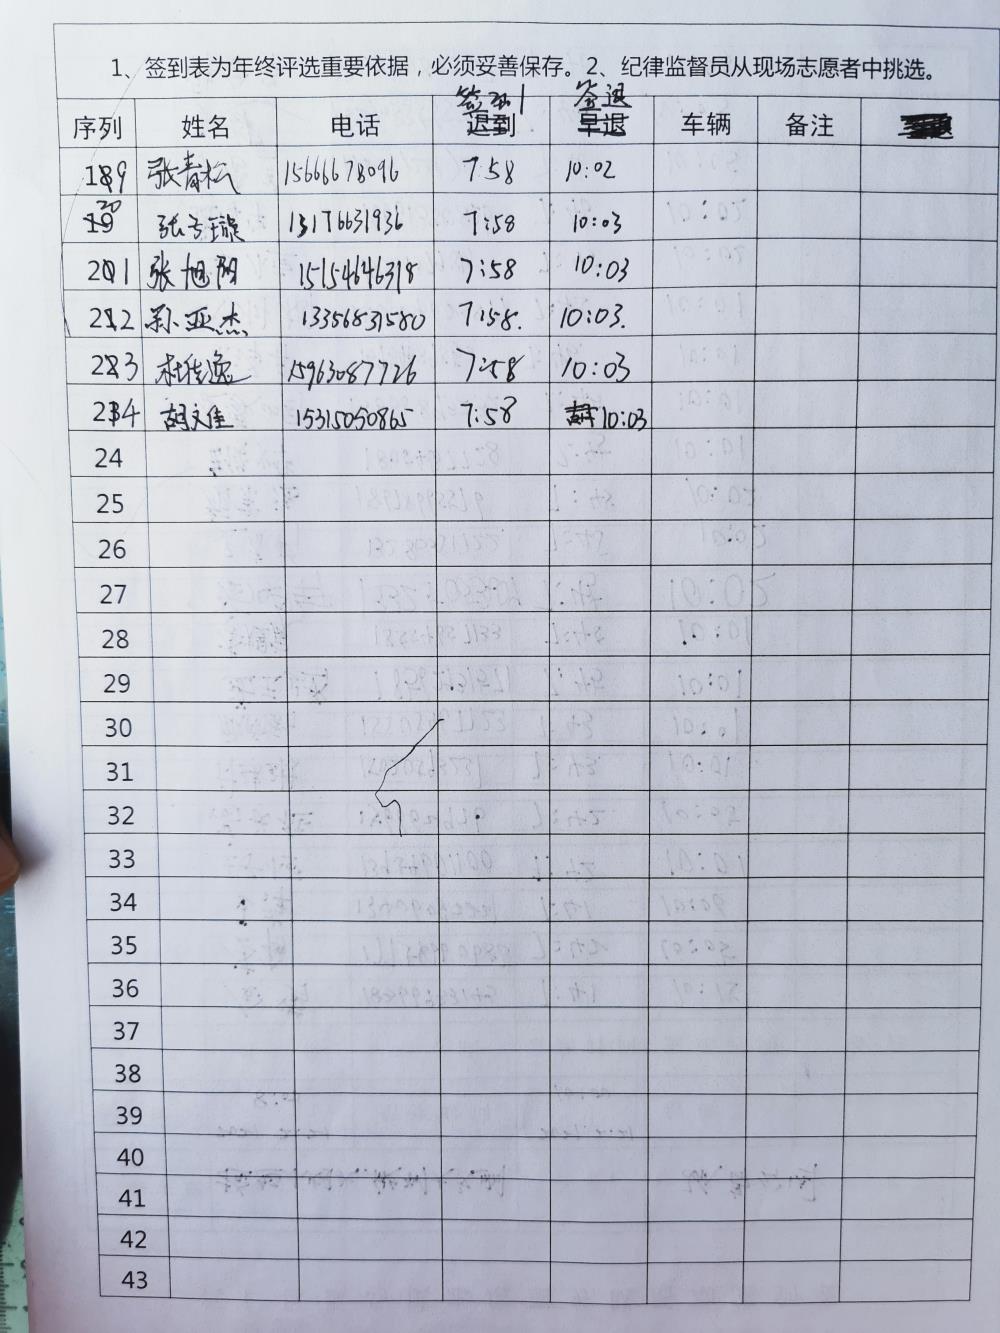 1、签到表为年终评选重要依据，必须妥善保存。2、纪律监督员从现场志愿者中挑选。
签到 签退
序列 姓名 电话 迟到 早退 车辆 备注
19 张青松 15666678096 7:58 10:02
20 13176631936 7:58 10:03
21 张旭阳 15154646318 7:58 10:03
22 孙亚杰 13356831580 7:58. 10:03.
23 杜佳逸 15963087726 7:58 10:03
24 胡文佳 15315050865 7:58 10:03
24
25
26
27
28
29
30
31
32
33
34
35
36
37
38
39
40
41
42
43